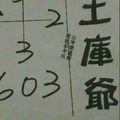 2
3
603
土庫爺